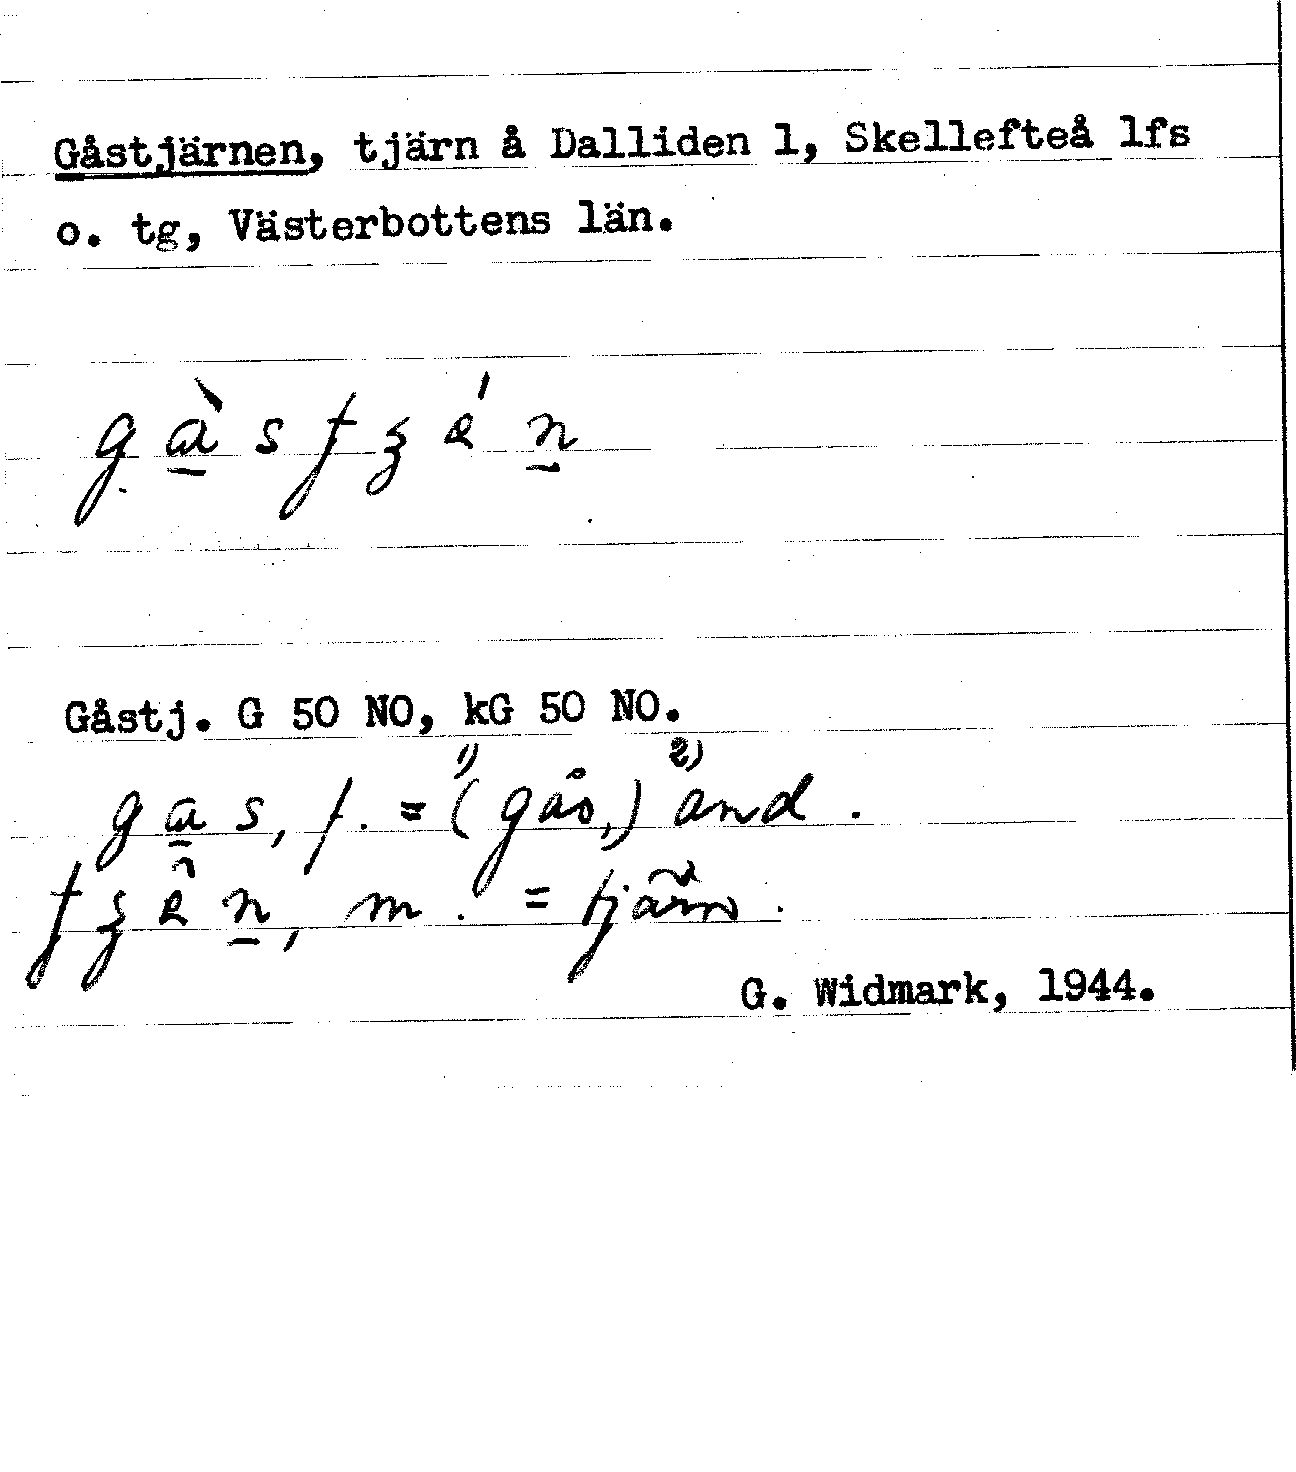 Gåstjärnen, tjärn å Dalliden 1, Skellefteå lfs
o. tg, Västerbottens län.
Gåstj. G 50 NO, kG 50 NO.
gas, f. = 1) (gås,) 2) and.
m. = tjärn.
G. Widmark, 1944.